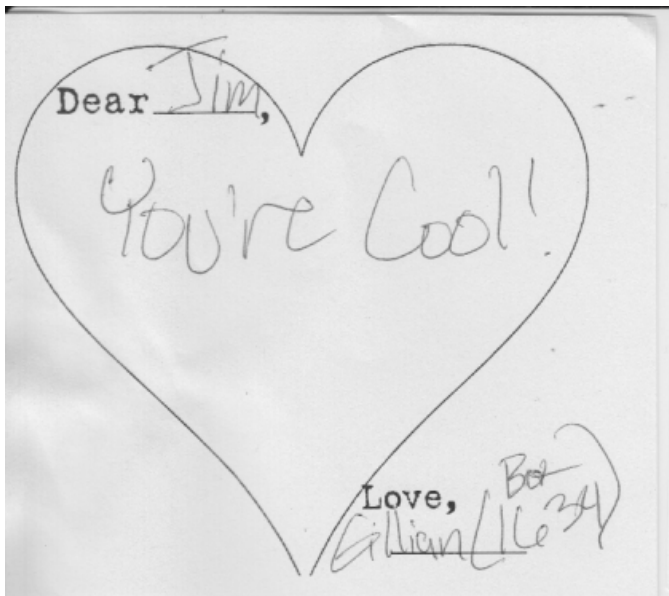 Dear Jim,
You're Cool!
Love,
Gillian (Box 1634)